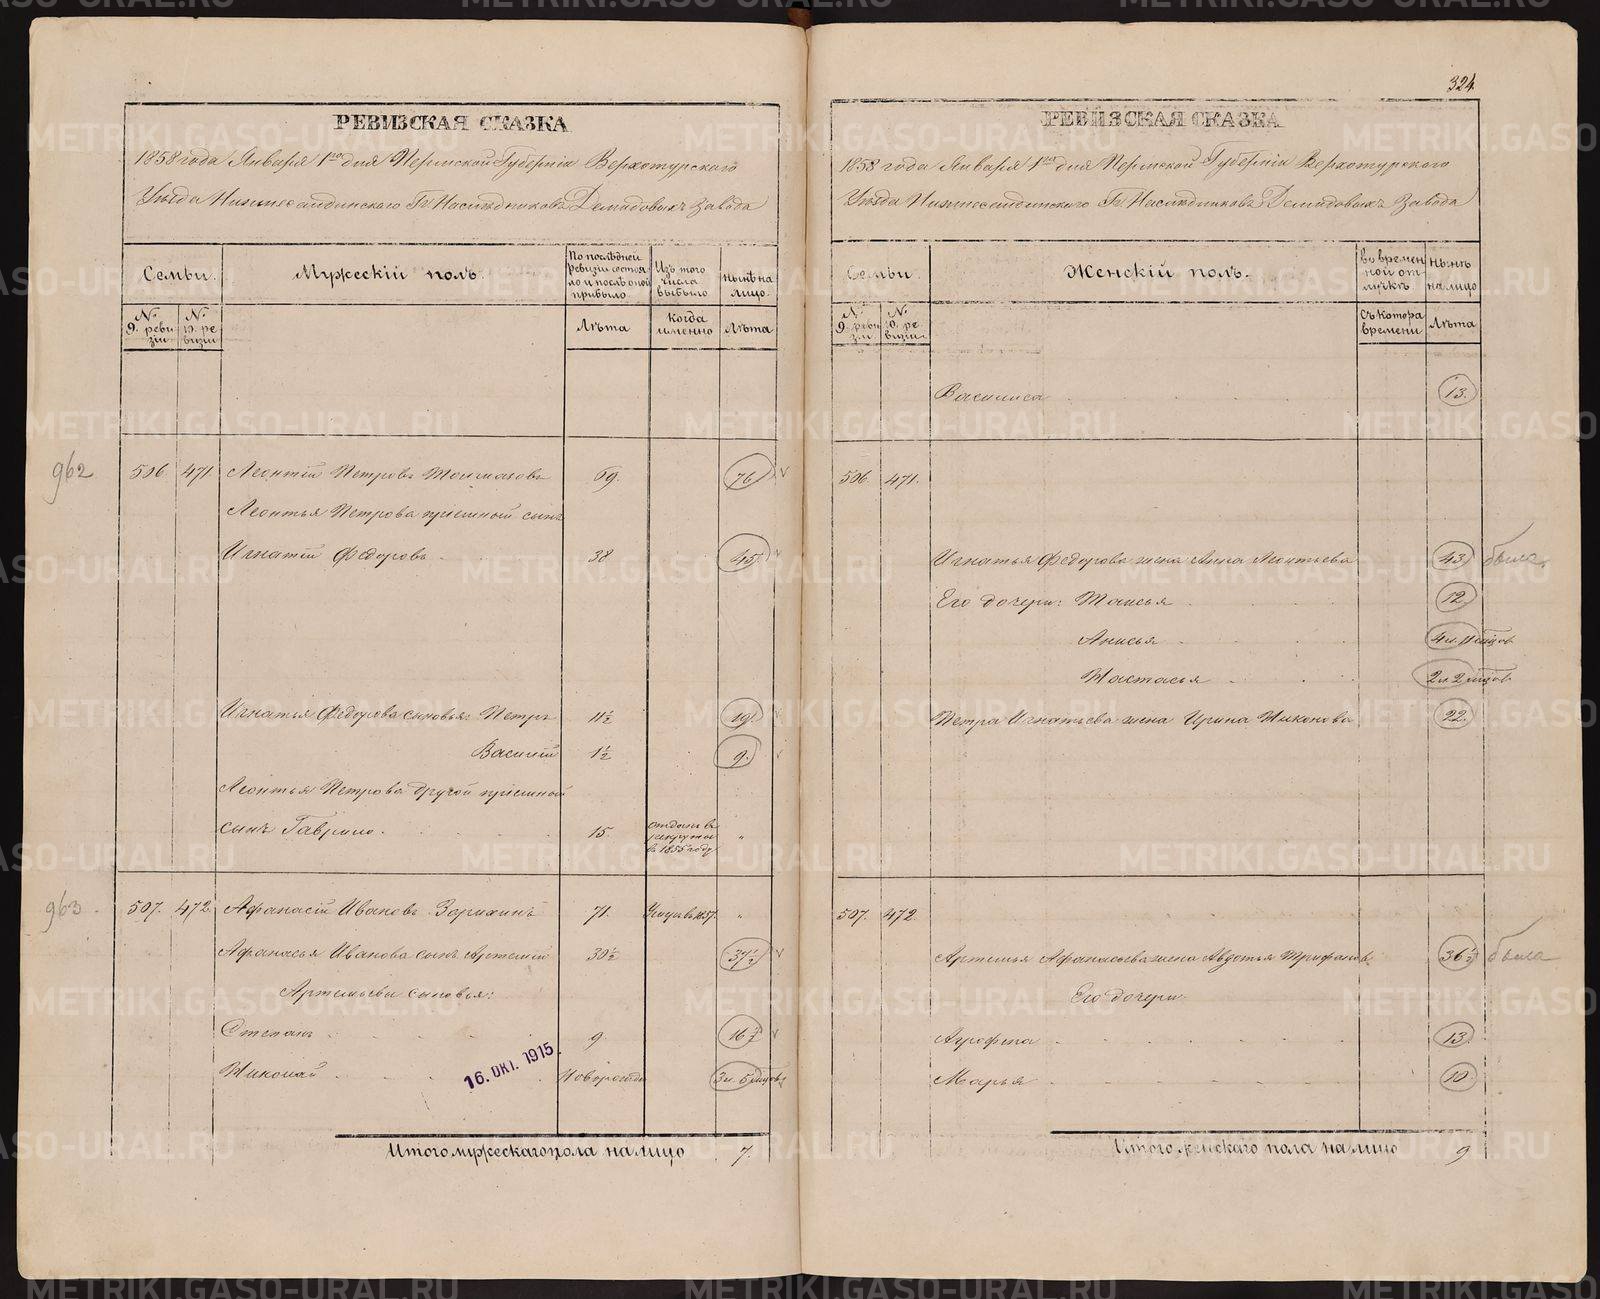 324
РЕВИЗСКАЯ СКАЗКА
1858 года Января 1го дня Пермской Губерніи Верхотурскаго
Уѣзда Нижнесалдинскаго Гг. Наслѣдниковъ Демидовыхъ Завода
Семьи.
Мужескій полъ.
По послѣдней ревизіи состояло и послѣ оной прибыло
Изъ того числа выбыло
Нынѣ на лицо.
№ 9. ревизіи
№ 10. ревизіи
Лѣта
Когда именно
Лѣта
962 506 471. Леонтій Петровъ 69. 76
Леонтья Петрова пріемной сынъ
Игнатій Федоровъ 38 45
Игнатья Федорова сыновья: Петръ 11½ 19
Василій 1½ 9.
Леонтья Петрова другой пріемной
сынъ Гаврило. 15. отданъ в рекруты в 1855 году "
963. 507. 472 Афанасій Ивановъ Зорихинъ 71. 1857. "
Афанасья Ивановa сынъ Артемій 30½ 37½
Артемьевы сыновья:
Степанъ 9. 16½
Николай Новорожде 3 и 5 мѣсцовъ
16. ОКТ. 1915
Итого мужескаго пола на лицо 7.
РЕВИЗСКАЯ СКАЗКА
1858 года Января 1го дня Пермской Губерніи Верхотурскаго
Уѣзда Нижнесалдинскаго Гг. Наслѣдниковъ Демидовыхъ Завода
Семьи.
Женскій полъ.
во временной отлучкѣ.
Нынѣ на лицо
№ 9. ревизіи
№ 10. ревизіи
Съ котора времени
Лѣта
Василиса 13.
506 471.
Игнатья Федорова жена Анна Леонтьева 43 была
Его дочери: Таисья 12
Анисья 4 и 11 мѣсцов
Настасья 2 и 2 мѣсцов
Петра Игнатьева жена Ирина Никонова 22.
507. 472.
Артемья Афанасьева жена Авдотья Трифанов. 36½ была
Его дочери
Агрофена 13
Марья 10.
Итого женскаго пола на лицо 9
METRIKI.GASO-URAL.RU